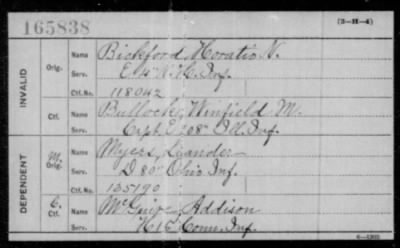 165838
(3-H-4)
INVALID
Orig.
Name Bickford, Horatio N.
Serv. E. 4" N.H. Inf.
Ctf. No. 118042
Ctf.
Name Bullock, Winfield M.
Serv. Capt. E, 208" Ill. Inf.
DEPENDENT
M. Orig.
Name Myers, Leander
Serv. D 80" Ohio Inf.
Ctf. No. 135190
C. Ctf.
Name McGuire, Addison
Serv. K 16" Conn. Inf.